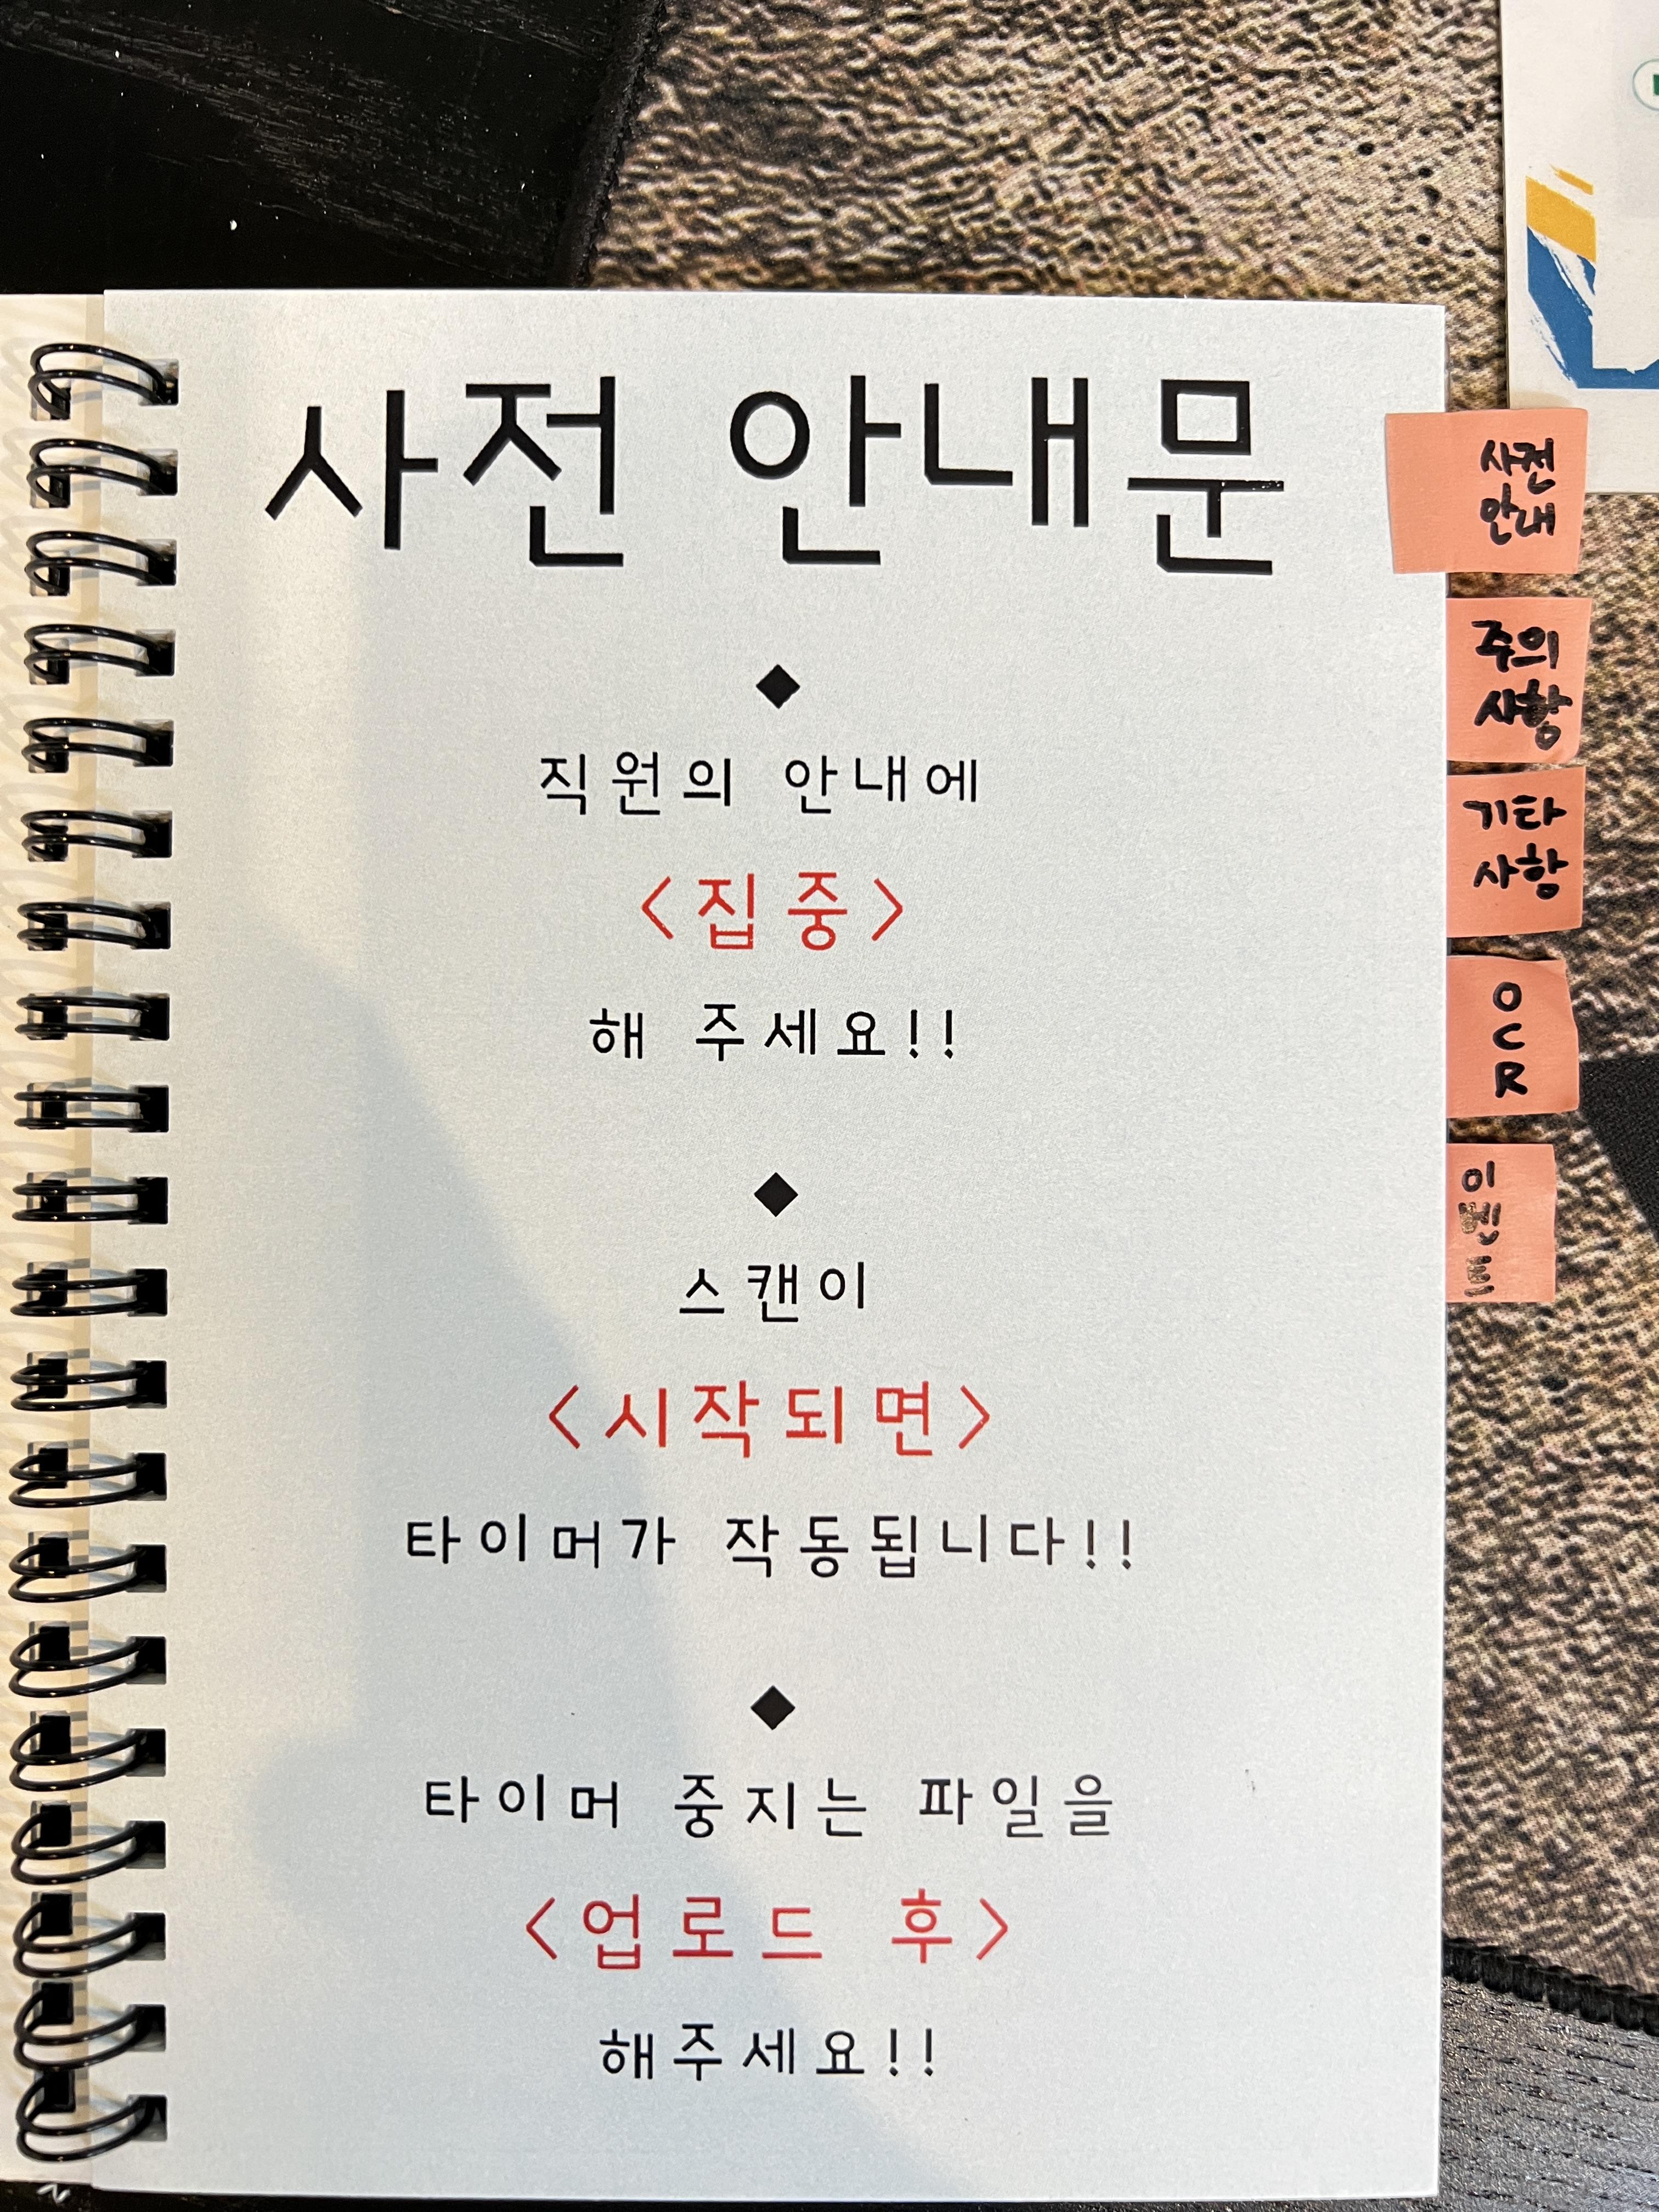 사전 안내문
◆
직원의 안내에
<집중>
해 주세요!!
◆
스캔이
<시작되면>
타이머가 작동됩니다!!
◆
타이머 중지는 파일을
<업로드 후>
해주세요!!
사전
안내
주의
사항
기타
사항
O
C
R
이
벤
트